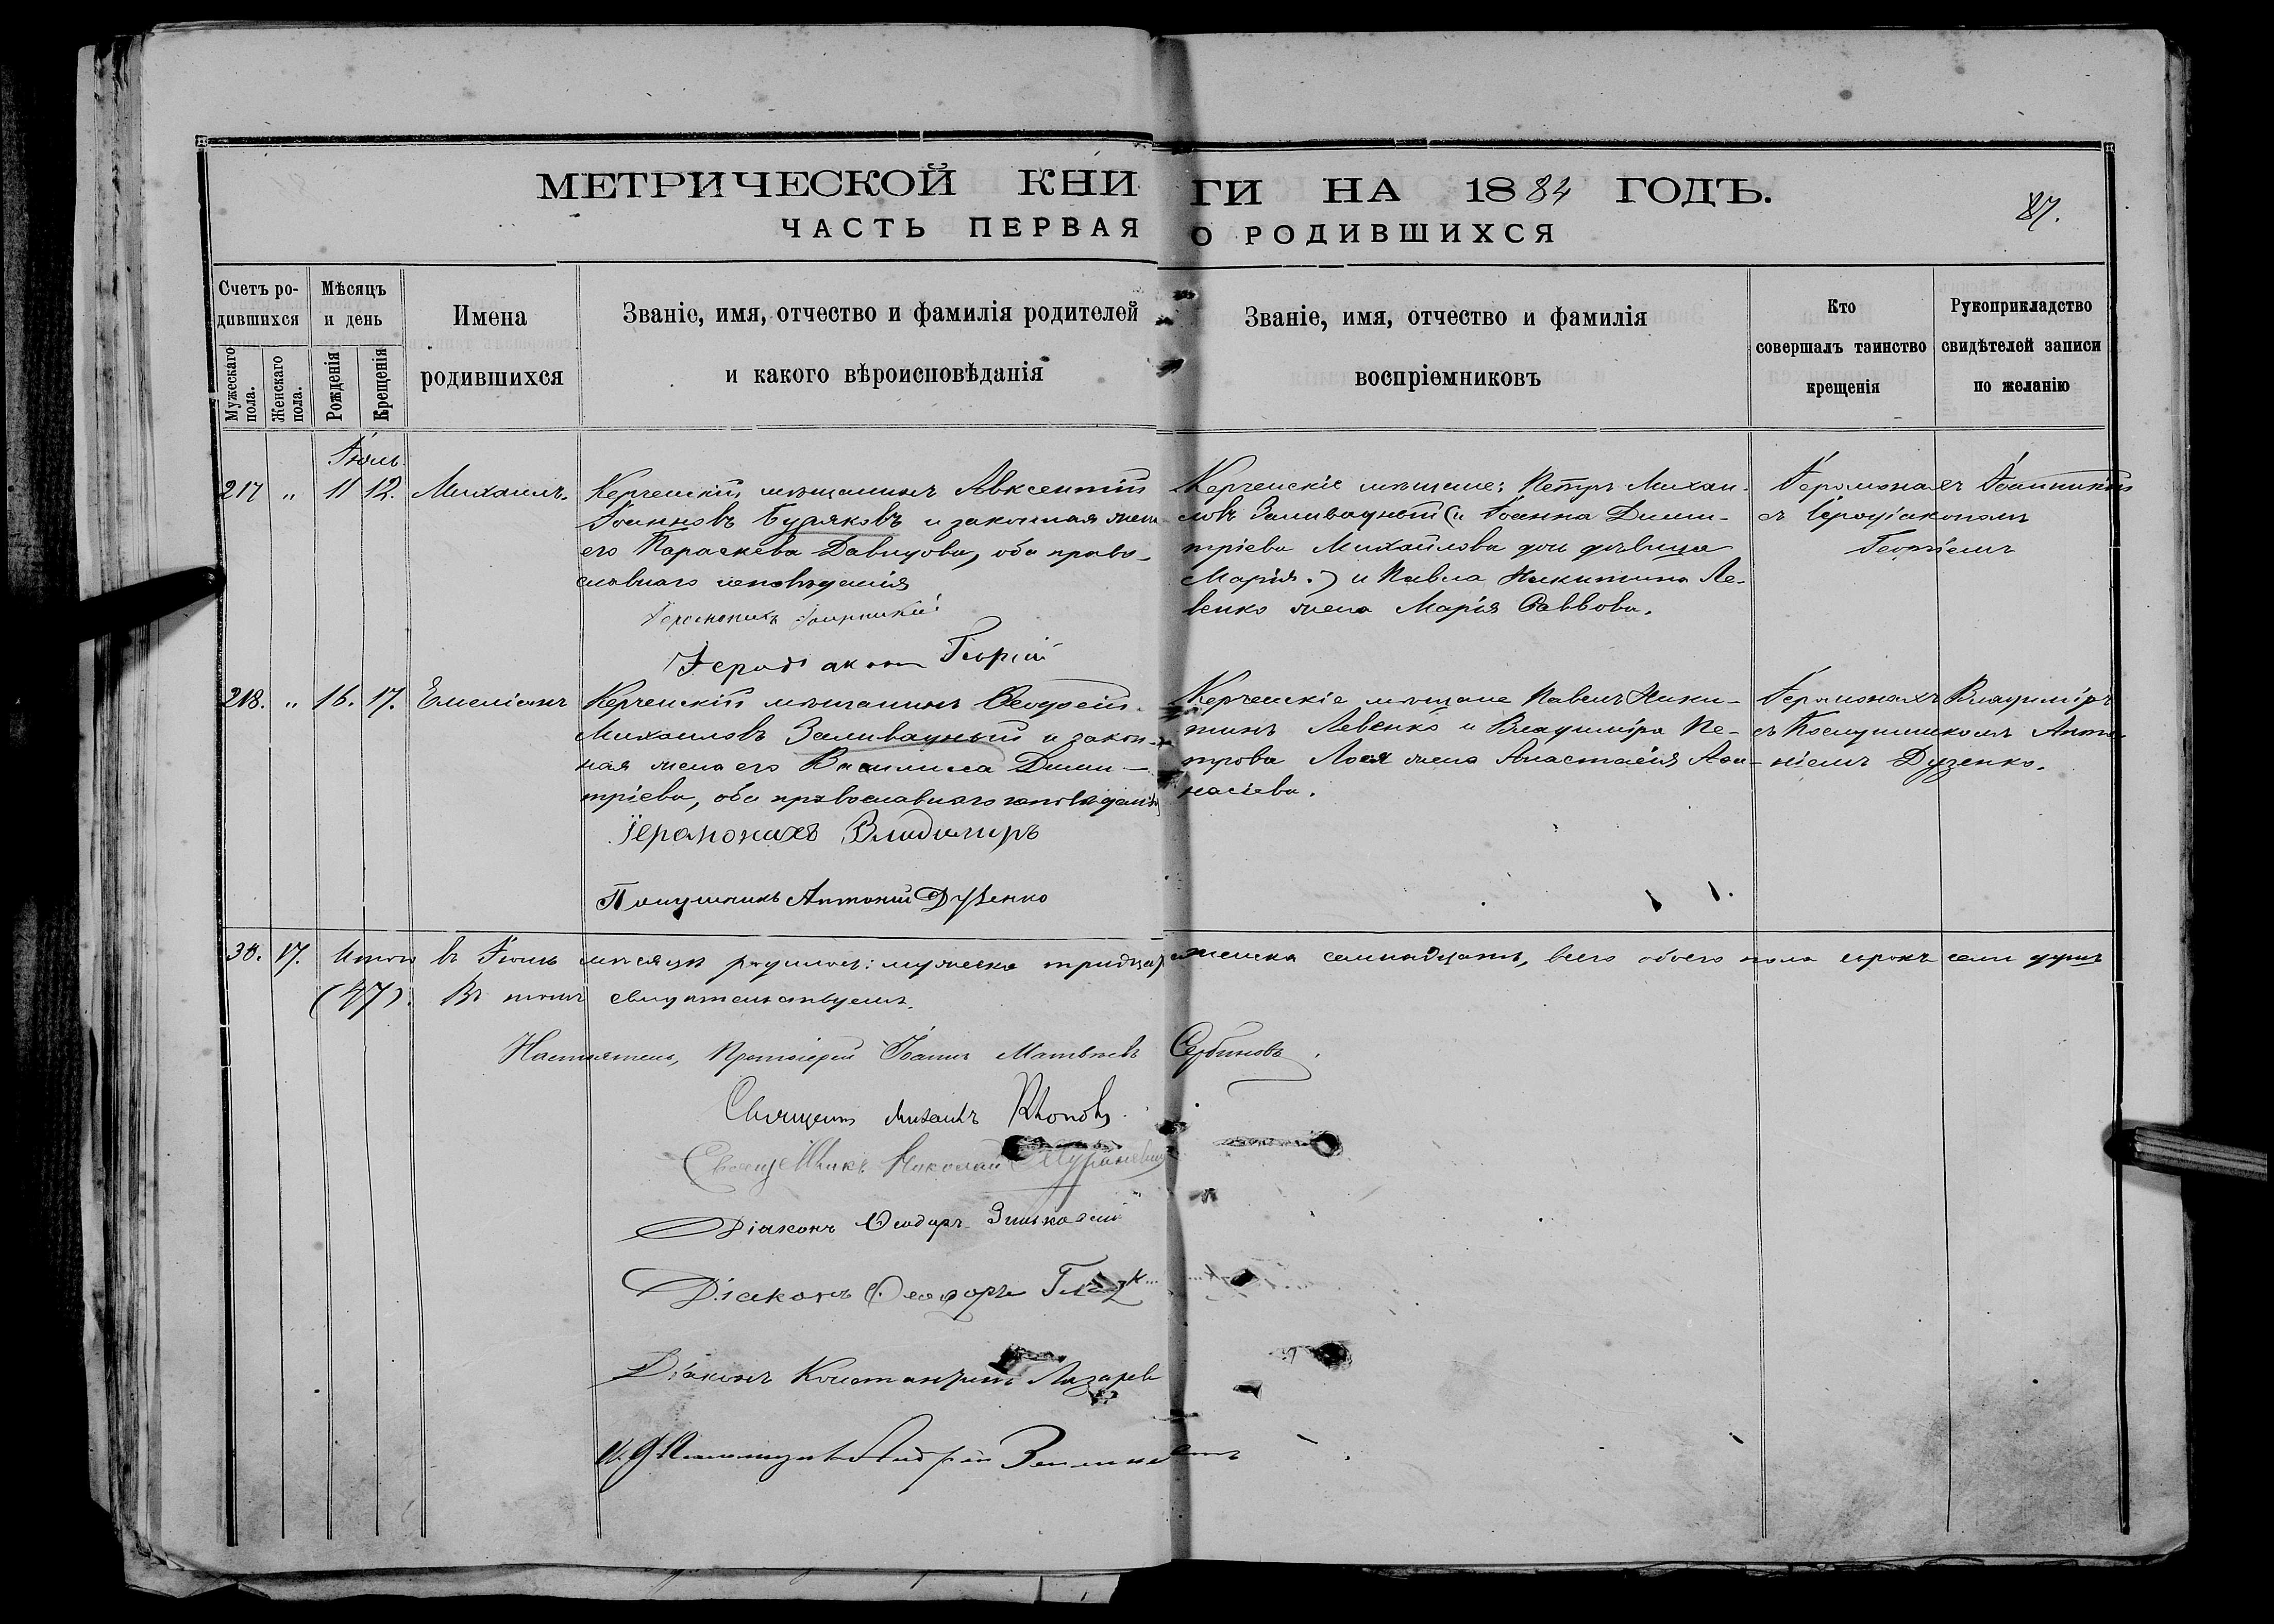 МЕТРИЧЕСКОЙ КНИГИ НА 1884 ГОДЪ.
87.
ЧАСТЬ ПЕРВАЯ О РОДИВШИХСЯ
Счетъ родившихся
Мужескаго пола.
Женскаго пола.
Мѣсяцъ и день
Рожденія
Крещенія
Имена родившихся
Званіе, имя, отчество и фамилія родителей
и какого вѣроисповѣданія
Званіе, имя, отчество и фамилія
воспріемниковъ
Кто
совершалъ таинство
крещенія
Рукоприкладство
свидѣтелей записи
по желанію
Іюль.
217 " 11 12. Михаилъ.
Керченскій мѣщанинъ Авксентій
Іоанновъ Буряковъ и законная жена
его Параскева Давидова, оба право-
славнаго исповѣданія
Іеромонахъ Іоанникій
Іеродіаконъ Георгій
Керченскіе мѣщане: Петръ Михаи-
ловъ Заливадный (и Іоанна Дими-
тріева Михайлова дочь дѣвица
Марія.) и Павла Никитина Ле-
венко жена Марія Саввова.
Іеромонахъ Іоанникій
съ Іеродіакономъ
Георгіемъ
218. " 16. 17. Емеліанъ
Керченскій мѣщанинъ Ѳеодосій
Михаиловъ Заливадный и закон-
ная жена его Василиса Дими-
тріева, оба православнаго исповѣданія
Іеромонахъ Владимиръ
Послушникъ Антоній Дузенко
Керченскіе мѣщане Павелъ Ники-
тинъ Левенко и Владиміра Пе-
трова Лоея жена Анастасія Аѳа-
насіева.
Іеромонахъ Владиміръ
съ Послушникомъ Анто-
ніемъ Дузенко.
30. 17. Итого въ Іюль мѣсяцѣ родилось: мужеска тридцать женска семнадцать, всего обоего пола сорокъ семь душъ
(47). Въ томъ свидѣтельствуемъ.
Настоятель, Протоіерей Іоаннъ Матвѣевъ Сербиновъ.
Священ. Михаилъ
Священникъ Николай
Діаконъ Ѳеодоръ
Діаконъ Ѳеодоръ
Діаконъ Константинъ Лазарев
И. д. Псаломщика Андрей